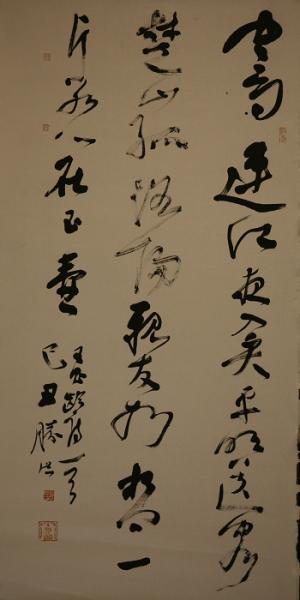 寒雨連江夜入吳平明送客
楚山孤洛陽親友如相問一
片冰心在玉壺
王昌齡詩一首
己丑勝